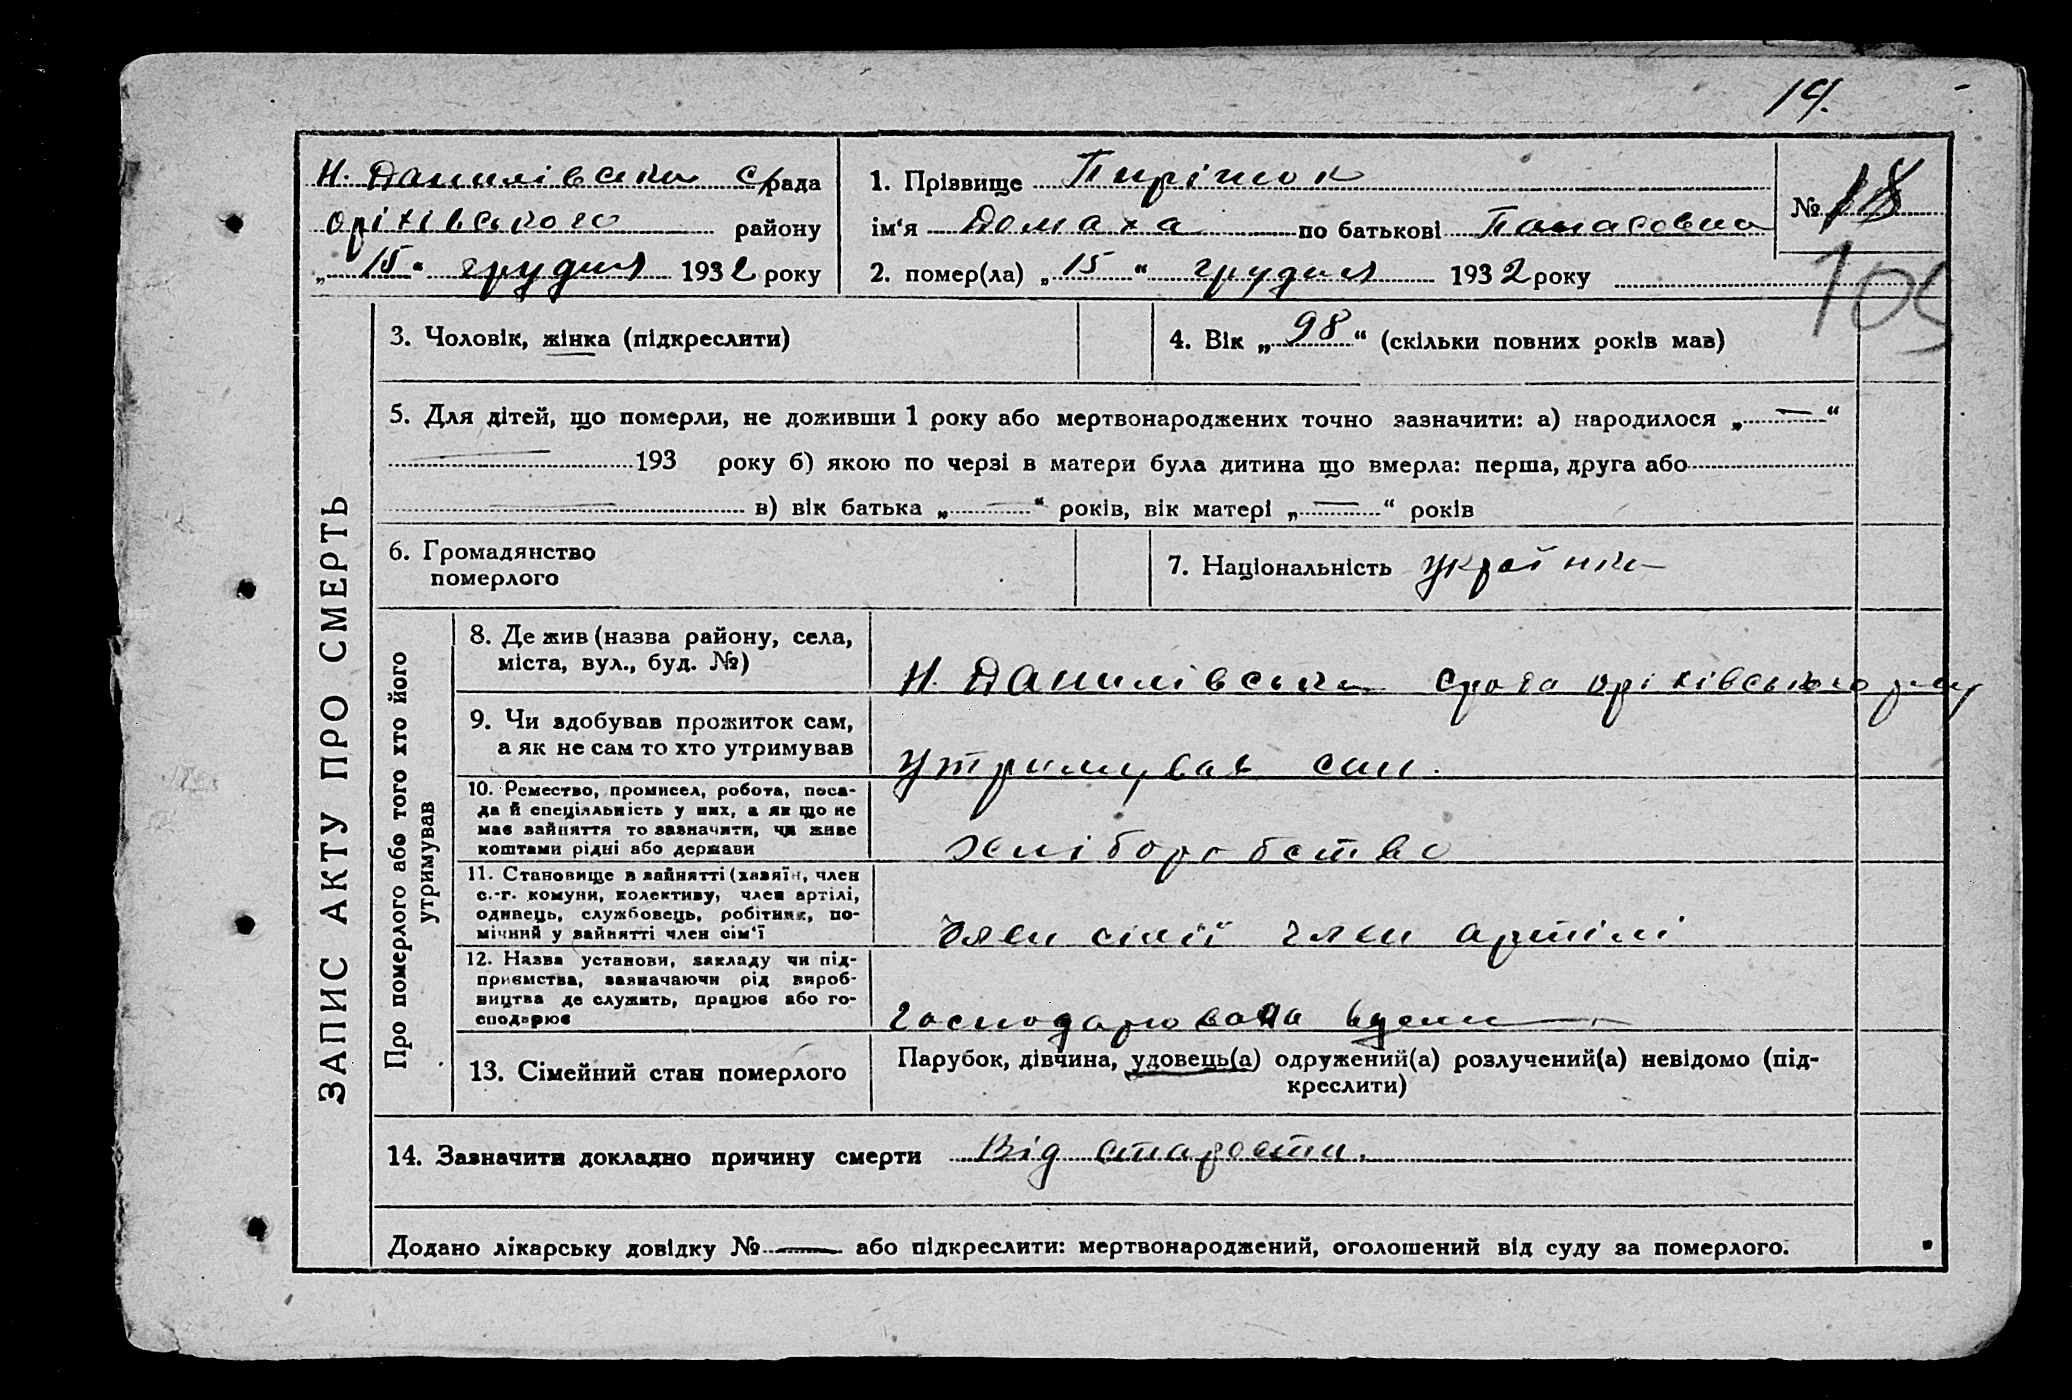 19.
Н. Данилівська с/рада
оріхівського району
„15“ грудня 1932 року
1. Прізвище Пиріжок
ім'я Домаха по батькові Панасовна
2. помер(ла) „15“ грудня 1932 року
№ 18
105
ЗАПИС АКТУ ПРО СМЕРТЬ
3. Чоловік, жінка (підкреслити)
4. Вік „98“ (скільки повних років мав)
5. Для дітей, що померли, не доживши 1 року або мертвонароджених точно зазначити: а) народилося „—“
193 року б) якою по черзі в матери була дитина що вмерла: перша, друга або
в) вік батька „—“ років, вік матері „—“ років
6. Громадянство
померлого
7. Національність українка
Про померлого або того хто його
утримував
8. Де жив (назва району, села,
міста, вул., буд. №)
Н. Данилівська срада оріхівського р-ну
9. Чи здобував прожиток сам,
а як не сам то хто утримував
утримував син.
10. Ремество, промисел, робота, поса-
да й спеціяльність у них, а як що не
має зайняття то зазначити, чи живе
коштами рідні або держави
хліборобство
11. Становище в зайнятті (хазяїн, член
с.-г. комуни, колективу, член артілі,
одинець, службовець, робітник, по-
мічний у зайнятті член сім'ї
член сімії член артілі
12. Назва установи, закладу чи під-
приємства, зазначаючи рід вироб-
ництва де служить, працює або го-
сподарює
господарювала вдома
13. Сімейний стан померлого
Парубок, дівчина, удовець(а) одружений(а) розлучений(а) невідомо (під-
креслити)
14. Зазначити докладно причину смерти Від старости.
Додано лікарську довідку № — або підкреслити: мертвонароджений, оголошений від суду за померлого.